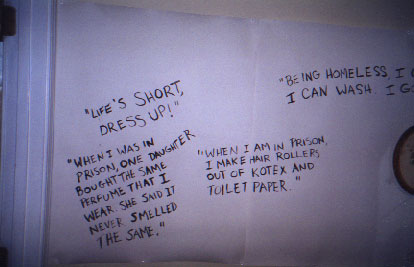 "LIFE'S SHORT,
DRESS UP!"
"BEING HOMELESS, I
I CAN WASH. I
"WHEN I WAS IN
PRISON, ONE DAUGHTER
BOUGHT THE SAME
PERFUME THAT I
WEAR. SHE SAID IT
NEVER SMELLED
THE SAME."
"WHEN I AM IN PRISON,
I MAKE HAIR ROLLERS
OUT OF KOTEX AND
TOILET PAPER."